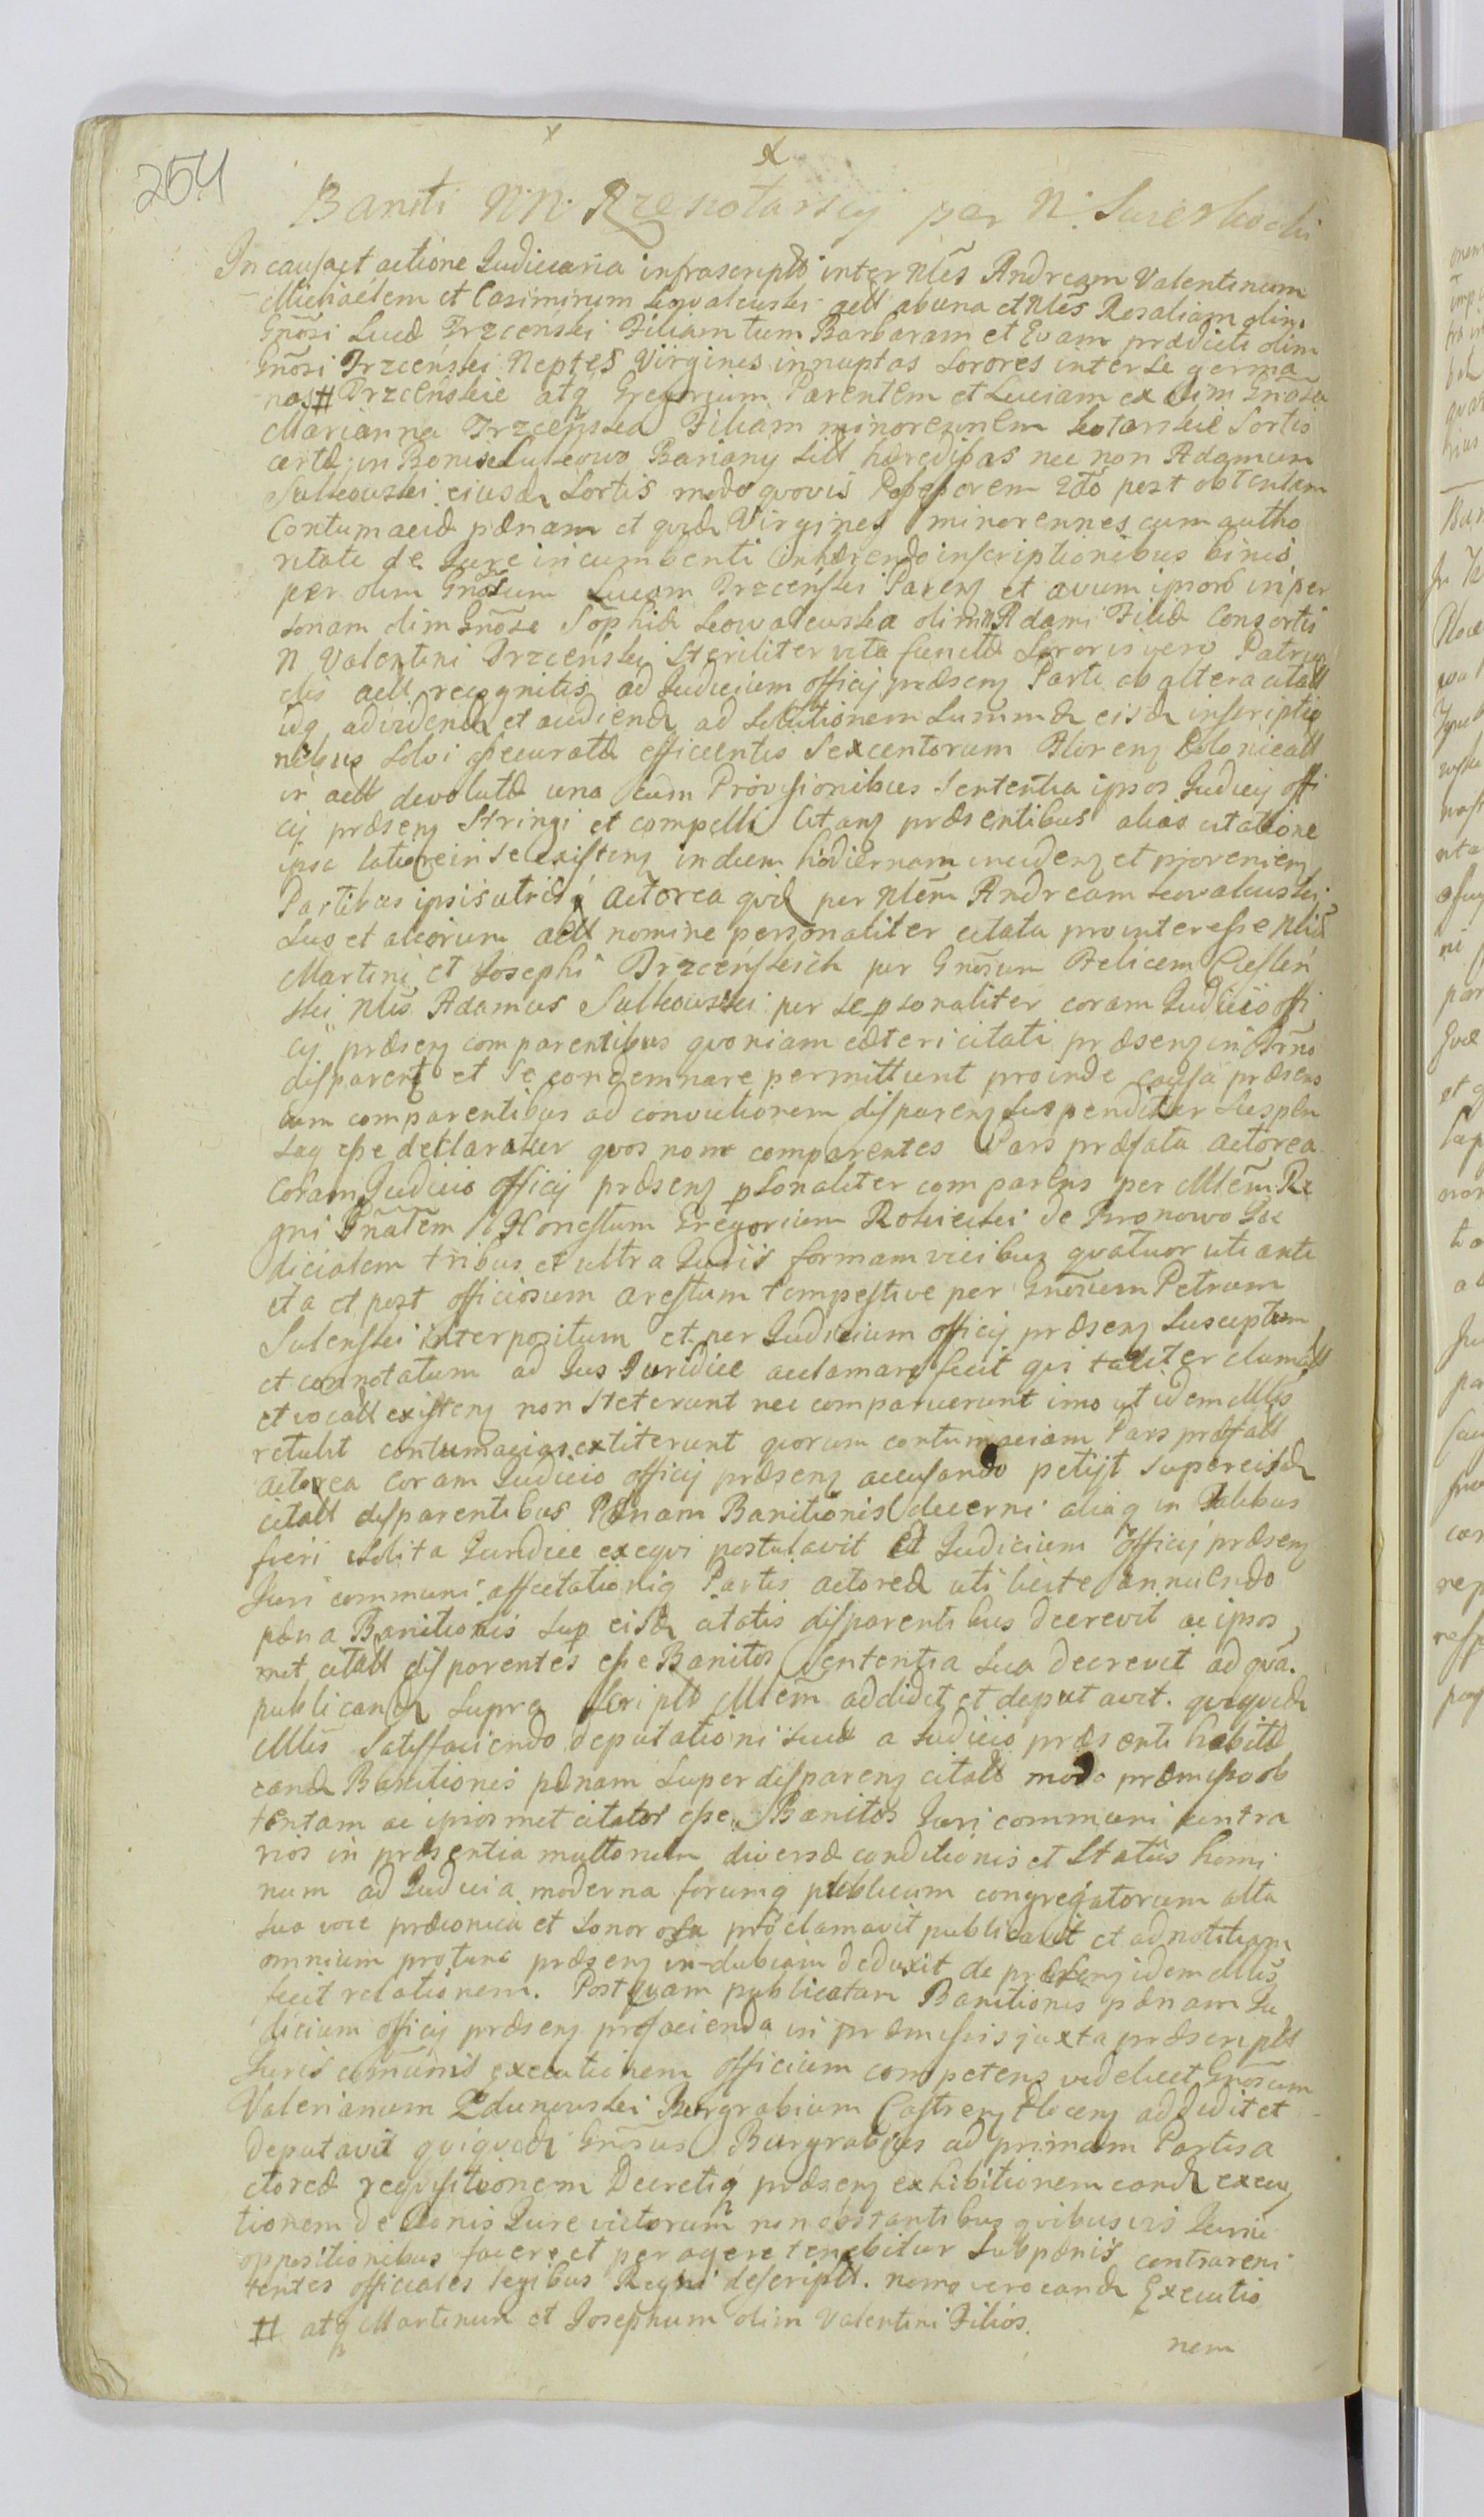 254
Baniti N.N. Rzeszotarscy per N.
In causa et actione Judiciaria infrascripta inter Nles Andream Valentinum
Michaelem et Casimirum Kowalewski act ab una et Nles Rosaliam olim
Gnosi Lucæ Trzcenski Filiam tum Barbaram et Evam prædicti olim
Gnosi Trzcenski Neptes Virgines innuptas Sorores inter se germa
nas # Trzcenskie atq Gregorium Parentem et Luciam ex olim Gnosa
Marianna Trzcenska Filiam minorennem Kotarskie Sortis
certæ in Bonis Sulkowo Bariany hæredibus nec non Adamum
Sulkowski eiusd Sortis modo quovis Possessorem post obtentam
Contumaciæ pænam et quid Virgines minorennes cum autho
ritate de Jure incumbenti inhærendo inscriptionibus binis
per olim Gnosum Lucam Trzcenski Parens et avum ipsorũ in per
sonam olim Gnosæ Sophiæ Kowalewska olim N Adami Filiæ Consortis
N Valentini Trzcenski steriliter vita functæ Sororis vero Patrue
lis act recognitis ad Judicium officij præsenς Parte ab altera citatt
idq ad videnđ et audienđ ad solutionem Summæ eisđ inscriptio
nibus solvi assecuratæ efficientis Sexcentorum Florenς Polonicatt
in act devolutæ una cum Provisionibus Sententia ipsos Judicij offi
cij præsenς Stringi et compelli citans præsentibus alias citatione
ipsa latiore in se existenς in diem hodiernam incidenς et provenienς
Partibus ipsis utrisq actorea quid per Nlem Andream Kowalewski
suo et aliorum act nomine personaliter citata pro interesse Nliũ
Martini et Josephi Trzcenskich per Gnosum Felicem Cieslen
ski Nlis Adamus Sulkowski per se psonaliter coram Judicio offi
cij præsenς comparentibus quoniam cæteri citati præsenς in Trno
disparenς et se condemnare permittunt proinde causa præsens
cum comparentibus ad convictionem disparenς suspenditur suspen
saq esse declaratur quos non comparentes Pars præfata actorea
coram Judicio officij præsenς psonaliter comparens per Mlem Re
gni Gnatem Honestum Gregorium Rosicki de Bronowo Ju
dicialem tribus et ultra Juris formam vicibus quatuor uti ante
ita et post officiosum arestum tempestive per Gnosum Petrum
Sulenski interpositum et per Judicium officij præsenς susceptum
et connotatum ad Jus Juridice acclamare fecit qui taliter clamatt
et vocatt existenς non steterunt nec comparuerunt imo ut idem Mlis
retulit contumacias extiterunt quorum contumaciam Pars præfatt
actorea coram Judicio officij præsenς accusando petijt super eisđ
citatt disparentibus Pænam Banitionis decerni aliaq in talibus
fieri solita Juridice exequi postulavit Et Judicium officij præsenς
Juri communi affectationiq Partis actoreæ uti licite annuendo
pæna Banitionis sup eisđ citatis disparentibus decrevit ac ipsos
met citatt disparentes esse Banitos Sententia sua decrevit ad qua.
publicanđ supra scriptt Mlem addidit et deputavit. quiquidđ
Mlis satisfaciendo deputationi suæ a Judicio præsenti habitæ
eanđ Banitionis pænam super disparenς citatt modo præmisso ob
tentam ac ipsosmet citatos esse Banitos Juri communi contra
rios in præsentia multorum diversæ conditionis et statûs homi
num ad Judicia moderna forumq publicum congregatorum alta
sua voce præconica et sonorosa proclamavit publicavit et ad notitiam
omnium protunc præsenς in dubiam deduxit de præsenς idem Mlis
fecit relationem. Post quam publicatam Banitionis pænam Ju
dicium officij præsenς pro facienda in præmissis juxta præscriptt
Juris comunis executionem officium competens videlicet Gnosum
Valerianum Zdunowski Burgrabium Castrenς Plocenς addidit et
deputavit quiquidđ Gnosus Burgrabius ad primam Partis a
ctoreæ requisitionem Decretiq præsenς exhibitionem eandđ execu
tionem de Bonis Jure victorum non obstantibus quibusvis Juri
oppositionibus facere et peragere tenebitur sub pænis contrareni
tentes officiales legibus Regni descriptt. nemo vero eandđ Executio
# atq Martinum et Josephum olim Valentini Filios.
nem